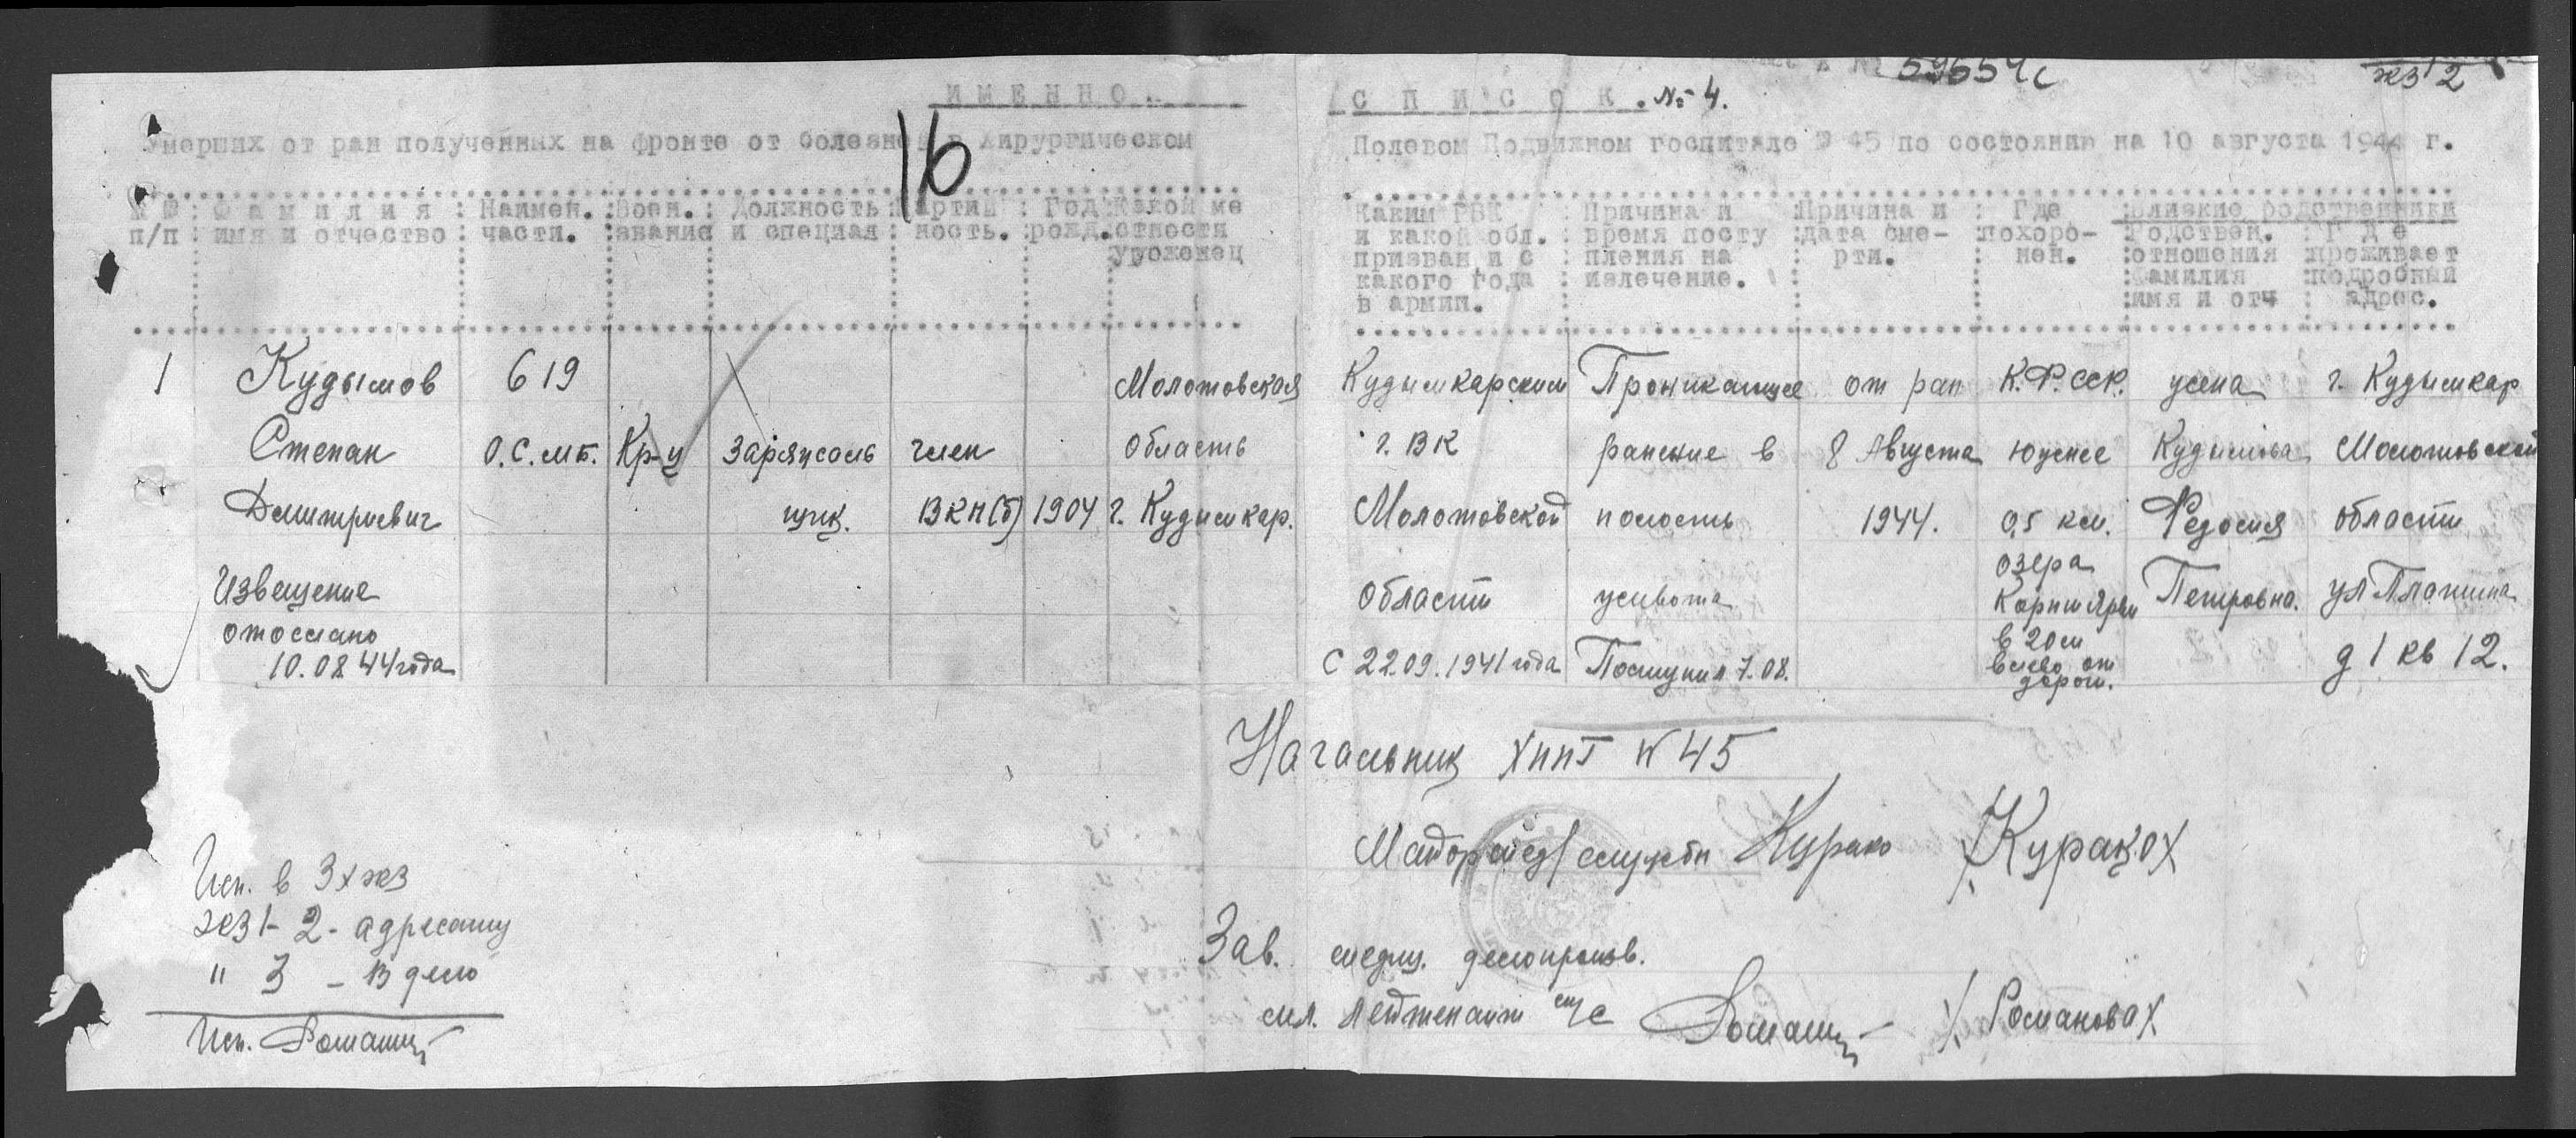 59654с
экз 2
ИМЕННО.
СПИСОК. № 4.
16
Умерших от ран полученных на фронте от болезней в Хирургическом
Полевом Подвижном госпитале № 45 по состоянию на 10 августа 1944 г.
№№ п/п
Фамилия имя и отчество
Наимен. части.
Воен. звание
Должность и специал
Партий ность.
Год рожд.
Какой ме стности уроженец
Каким РВК и какой обл. призван и с какого года в армии.
Причина и время посту пления на излечение.
Причина и дата сме- рти.
Где похоро- нен.
Близкие родственники
Родствен. отношения фамилия имя и отч
Где проживает подробный адрес.
1
Кудымов Степан Дмитриевич
619 О.С.мб.
Кр-ц
Заряжаль щик.
член ВКП(б)
1904
Молотовская область г. Кудымкар.
Кудымкарским г.ВК Молотовской области с 22.09.1941 года
Проникающее ранение в полость живота Поступил 7.08.
от ран 8 Августа 1944.
К.Ф.ССР. южнее 0,5 км. озера в 20 м влево от дороги.
жена Кудымова Федосия Петровна.
г. Кудымкар Молотовской области ул д 1 кв 12.
Извещение
отослано
10.08 44 года
Начальник ХППГ № 45
Майор мед/службы Курако /Курако/
Зав. делопроизв.
мл. лейтенант м/с /Романова/
Исп. в 3х экз
экз 1-2- адресату
" 3 - в дело
Исп.